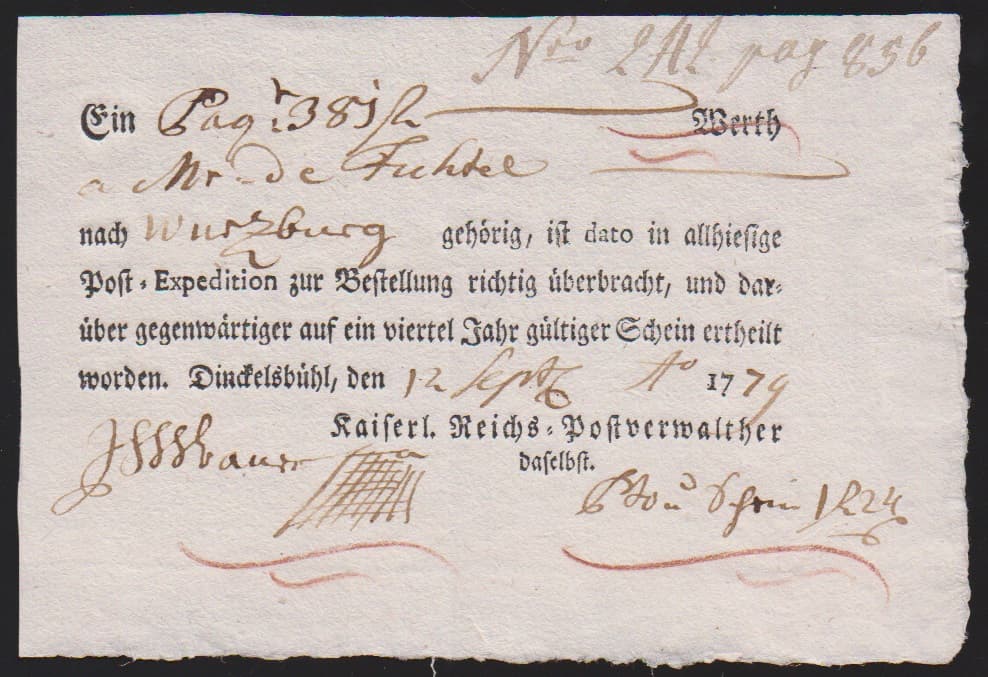 Nro 242. pag 856
Ein Paq: 381 f Werth
a Mr. de Fichtel
nach Wurzburg gehörig, ist dato in allhiesige
Post-Expedition zur Bestellung richtig überbracht, und dar-
über gegenwärtiger auf ein viertel Jahr gültiger Schein ertheilt
worden. Dinckelsbühl, den 12 Sept Ao 1779
Kaiserl. Reichs-Postverwalther
daselbst.
Schein 1 f 24